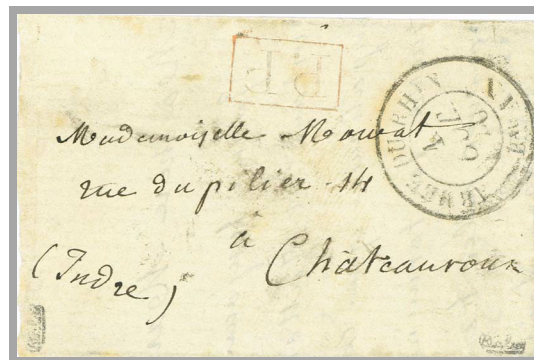 P.P.
ARMÉE DU RHIN
Mademoiselle Mouvat
rue du pilier 14
à
Châteauroux
(Indre)